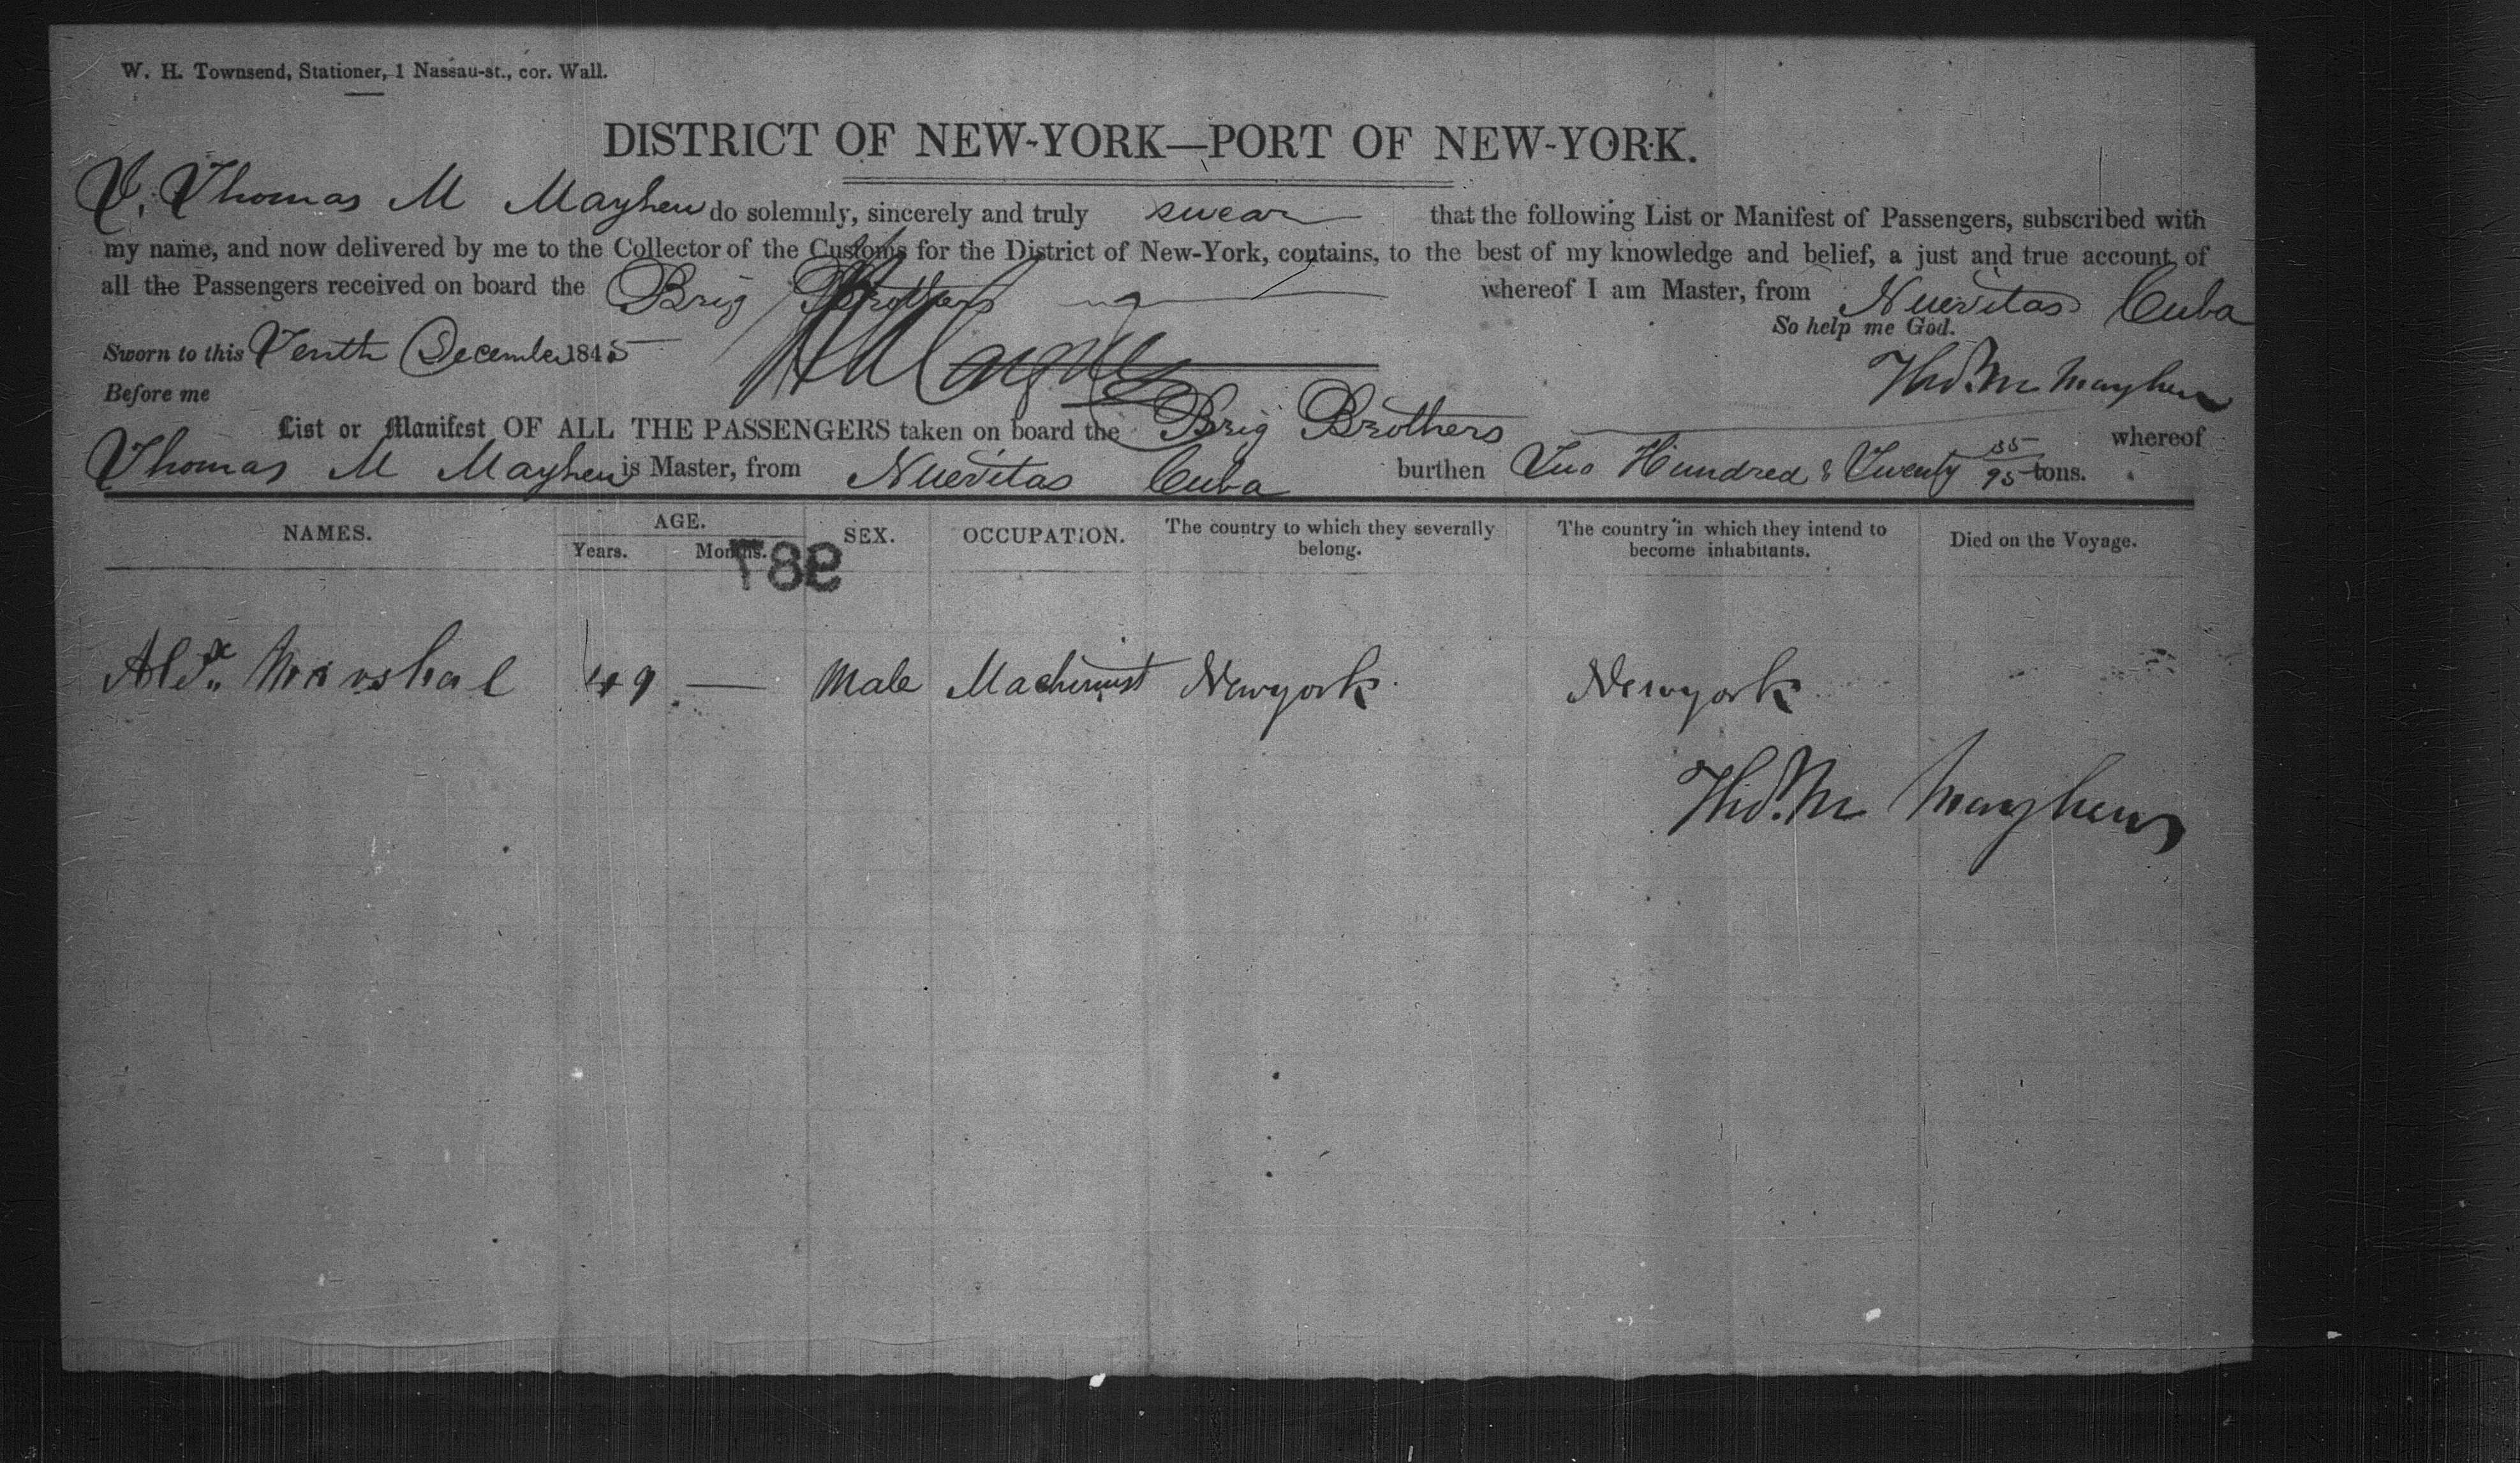 W. H. Townsend, Stationer, 1 Nassau-st., cor. Wall.
DISTRICT OF NEW-YORK—PORT OF NEW-YORK.
I, Thomas M Mayhew do solemnly, sincerely and truly swear that the following List or Manifest of Passengers, subscribed with
my name, and now delivered by me to the Collector of the Customs for the District of New-York, contains, to the best of my knowledge and belief, a just and true account of
all the Passengers received on board the Brig Brothers whereof I am Master, from Nuevitas Cuba
So help me God.
Sworn to this Tenth December 1845
Thos. M Mayhew
Before me
List or Manifest OF ALL THE PASSENGERS taken on board the Brig Brothers whereof
Thomas M Mayhew is Master, from Nuevitas Cuba burthen Two Hundred & Twenty 35/95 tons.
NAMES. AGE. SEX. OCCUPATION. The country to which they severally belong. The country in which they intend to become inhabitants. Died on the Voyage.
Years. Months.
987
Alex. Marshal 49 — Male Machinist Newyork. Newyork
Thos. M Mayhew